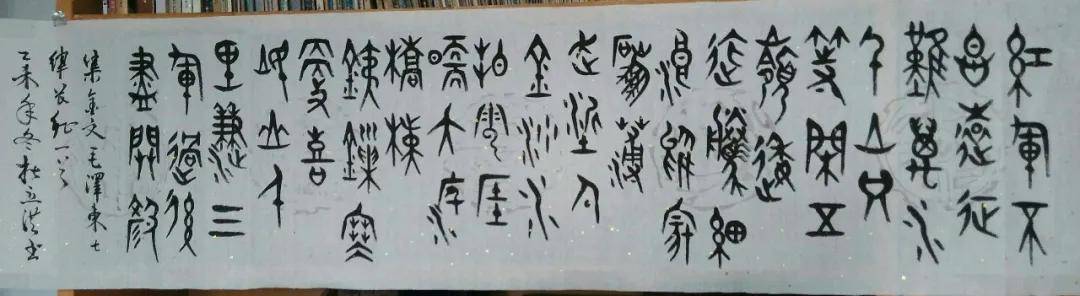 紅軍不
怕遠征
難萬水
千山只
等閑五
嶺逶
迤騰細
浪烏蒙
磅礴
走泥丸
金沙水
拍雲崖
暖大渡
橋橫
鐵索寒
更喜
岷山千
里雪三
軍過後
盡開顏
集金文毛澤東七
律長征一首
乙未年冬杜立洪书